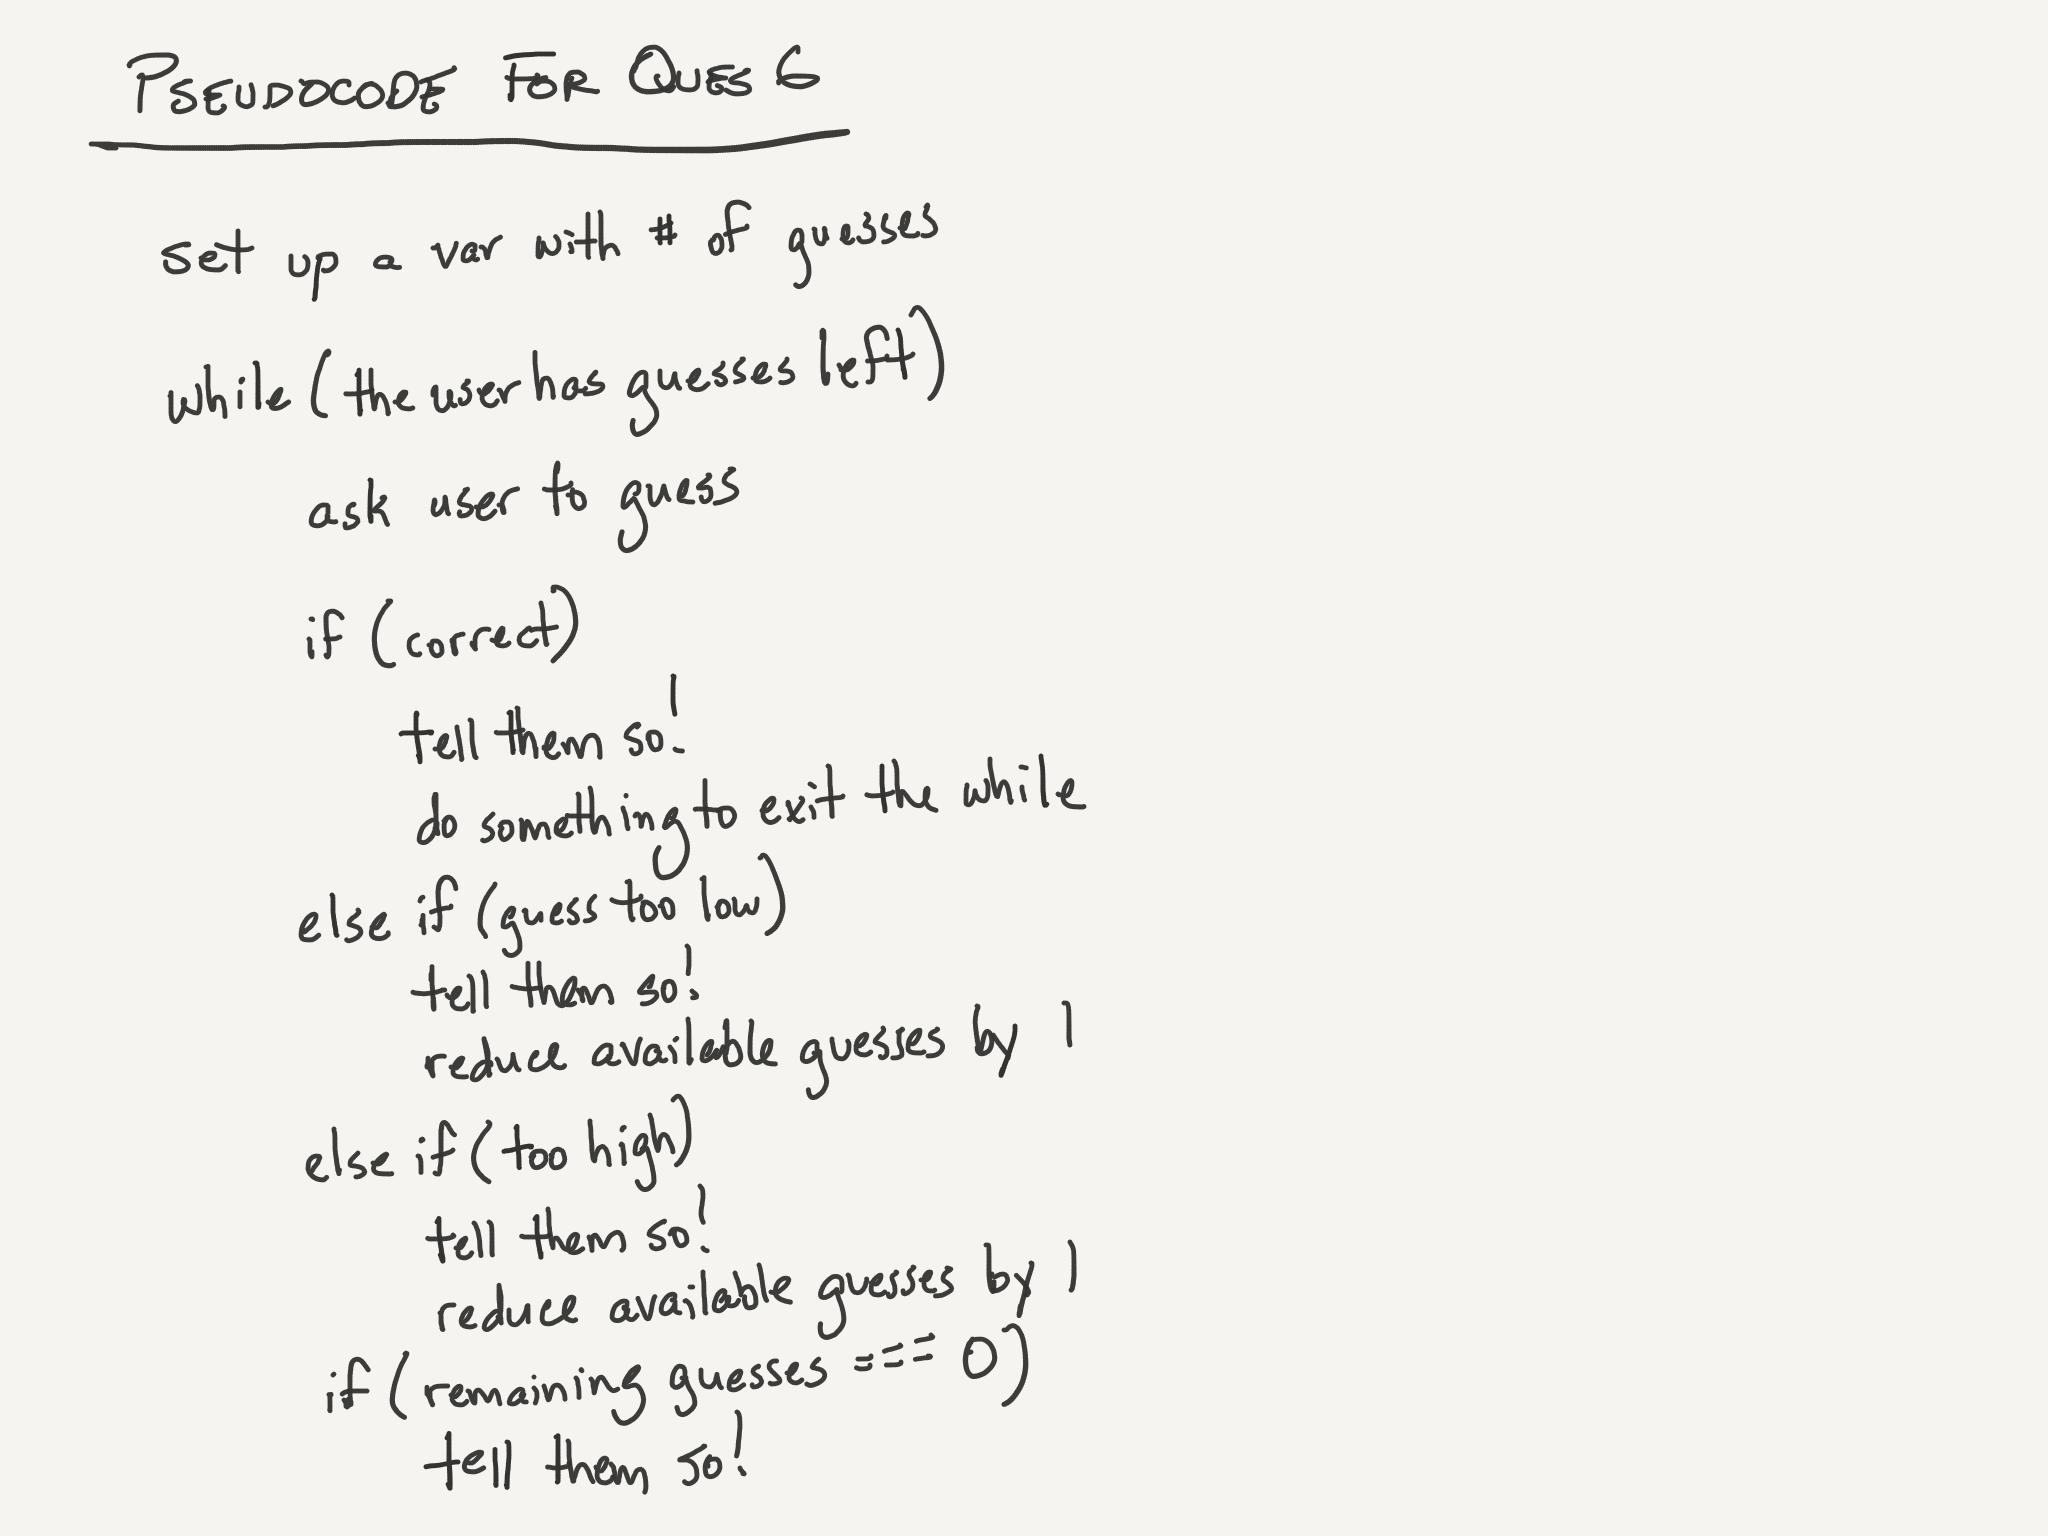 PSEUDOCODE FOR QUES 6
set up a var with # of guesses
while (the user has guesses left)
ask user to guess
if (correct)
tell them so!
do something to exit the while
else if (guess too low)
tell them so!
reduce available guesses by 1
else if (too high)
tell them so!
reduce available guesses by 1
if (remaining guesses === 0)
tell them so!